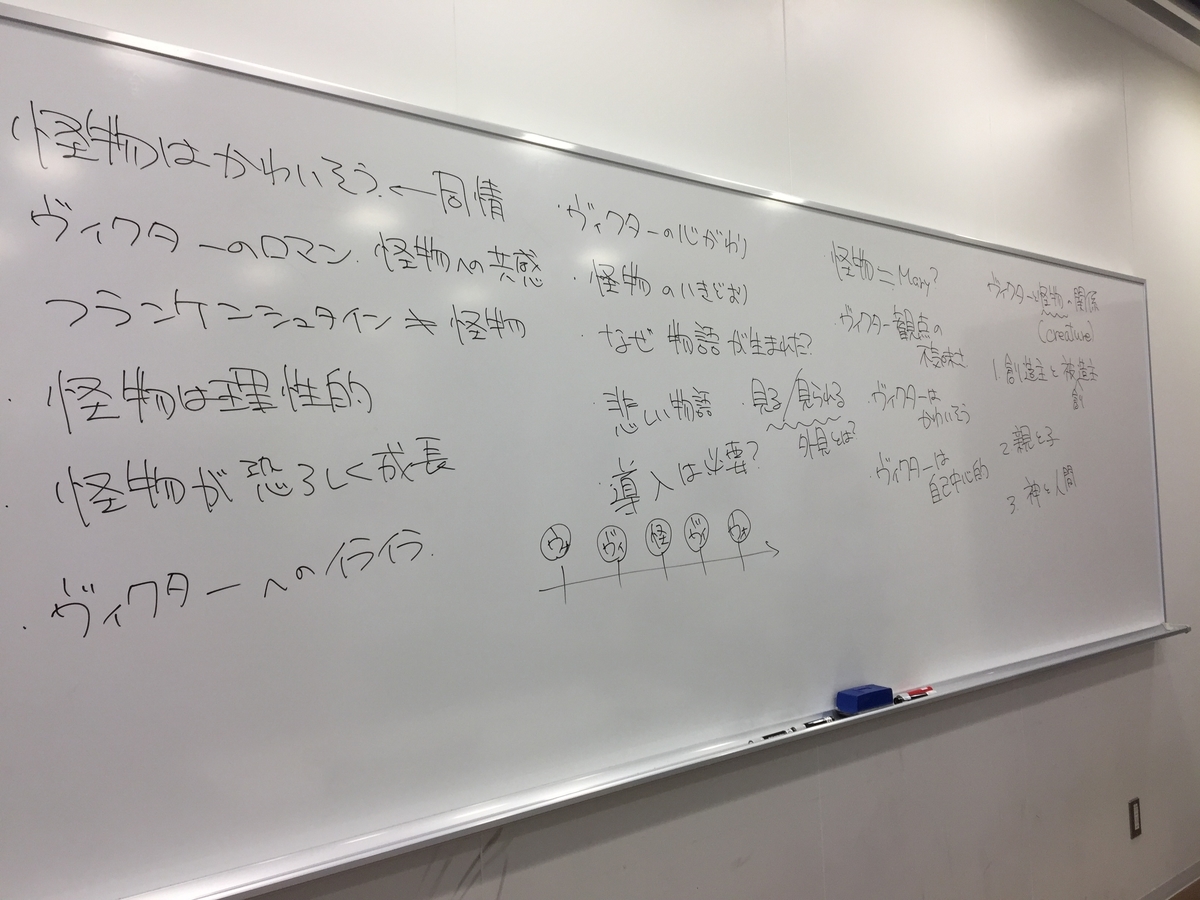 怪物はかわいそう ←同情
ヴィクターのロマン. 怪物への共感
フランケンシュタイン ≠ 怪物
・怪物は理性的
・怪物が恐ろしく成長
・ヴィクターへのイライラ.
・ヴィクターの心がわり
・怪物のいきどおり
・なぜ物語が生まれた?
・悲しい物語
・見る/見られる
外見とは?
・導入は必要?
ウォ ヴィ 怪 ヴィ ウォ
・怪物=Mary?
・ヴィクター観点の
不気味さ
・ヴィクターは
かわいそう
・ヴィクターは
自己中心的
ヴィクターと怪物の関係
(creature)
1. 創造主と被造主
創
2. 親と子
3. 神と人間